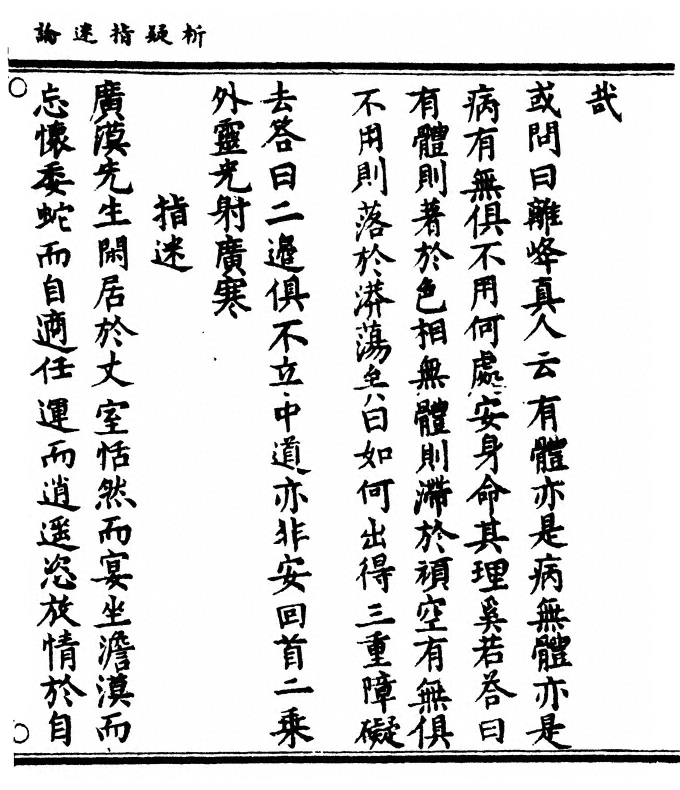 論迷指疑析
哉
或問曰離峰真人云有體亦是病無體亦是
病有無俱不用何處安身命其理奚若答曰
有體則著於色相無體則滯於頑空有無俱
不用則落於漭蕩矣曰如何出得三重障礙
去答曰二邊俱不立中道亦非安回首二乘
外靈光射廣寒
指迷
廣漠先生閑居於丈室恬然而宴坐澹漠而
忘懷委蛇而自適任運而逍遥恣放情於自